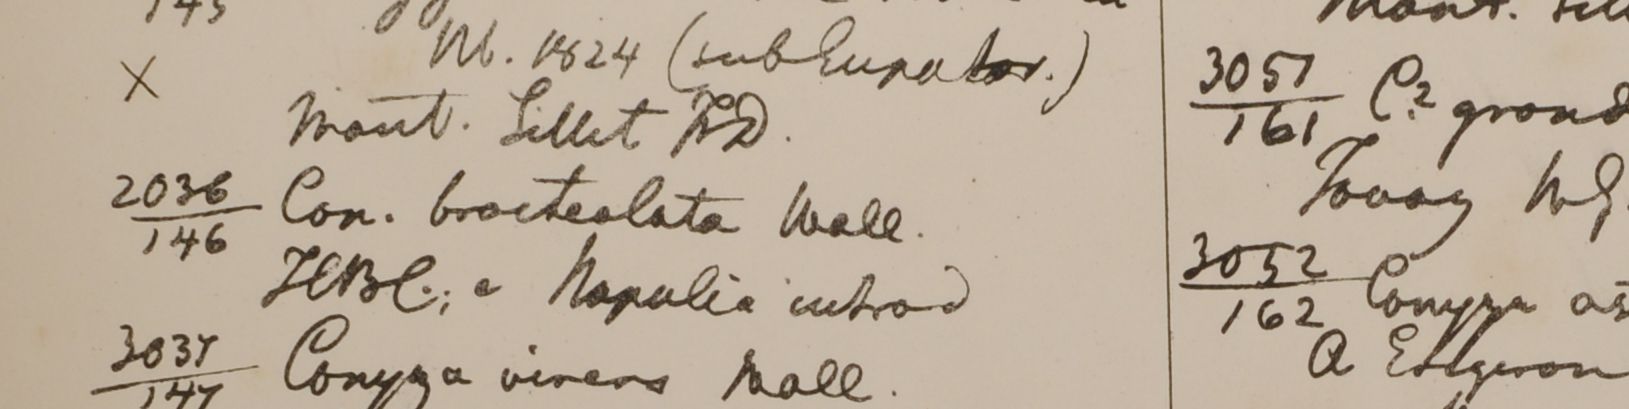 145
Nb. 1824 (sub Eupator.)
X
Mont. Sillet FD.
2036/146 Con. bracteolata Wall.
HBC.; e Napalia introd
3037/147 Conyza virens Wall.
Mont. Sill
3051/161 C.? grand
Tavoy WG.
3052/162 Conyza as